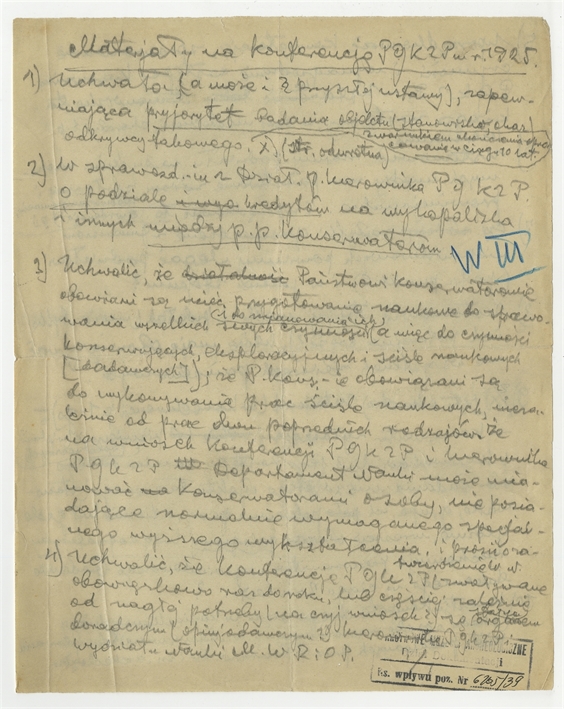 Materjały na konferencję PGKZP w r. 1925.
1) Uchwała (a może i § przyszłej ustawy), zapew-
niająca pryjorytet badania objektu (stanowiska, obsz.)
odkrywcy takowego. X) (str. odwrotna)
z warunkiem ukończenia opra-
cowania w ciągu 10 lat.
2) W sprawozd. z Dział. p. Kierownika PGKZP.
o podziale kredytów na wykopaliska
i innych między p.p. Konserwatorom
W III
3) Uchwalić, że działalność Państwowi Konserwatorowie
obowiązani są mieć przygotowanie naukowe do sprawo-
wania wszelkich swych czynności (a więc do czynności
konserwujących, eksploracyjnych i ściśle naukowych
[badawczych]); że P. Kons. obowiązani są
do wykonywania prac ściśle naukowych, nieza-
leżnie od prac dwu poprzednich rodzajów. Że
na wniosek Konferencji PGKZP i Kierownika
PGKZP Departament Nauki może mia-
nować na Konserwatorami osoby, nie posia-
dające normalnie wymaganego specjal-
nego wyższego wykształcenia, i
4) Uchwalić, że Konferencje PGKZP (zwoływane
obowiązkowo raz do roku, lub częściej zależnie
od nagłej potrzeby (na czyj wniosek?) są organem
doradczym (opinjodawczym?) Kierownika PGKZP i
Wydziału Nauki M.W.R.iO.P.
Ks. wpływu poz. Nr 6765/39